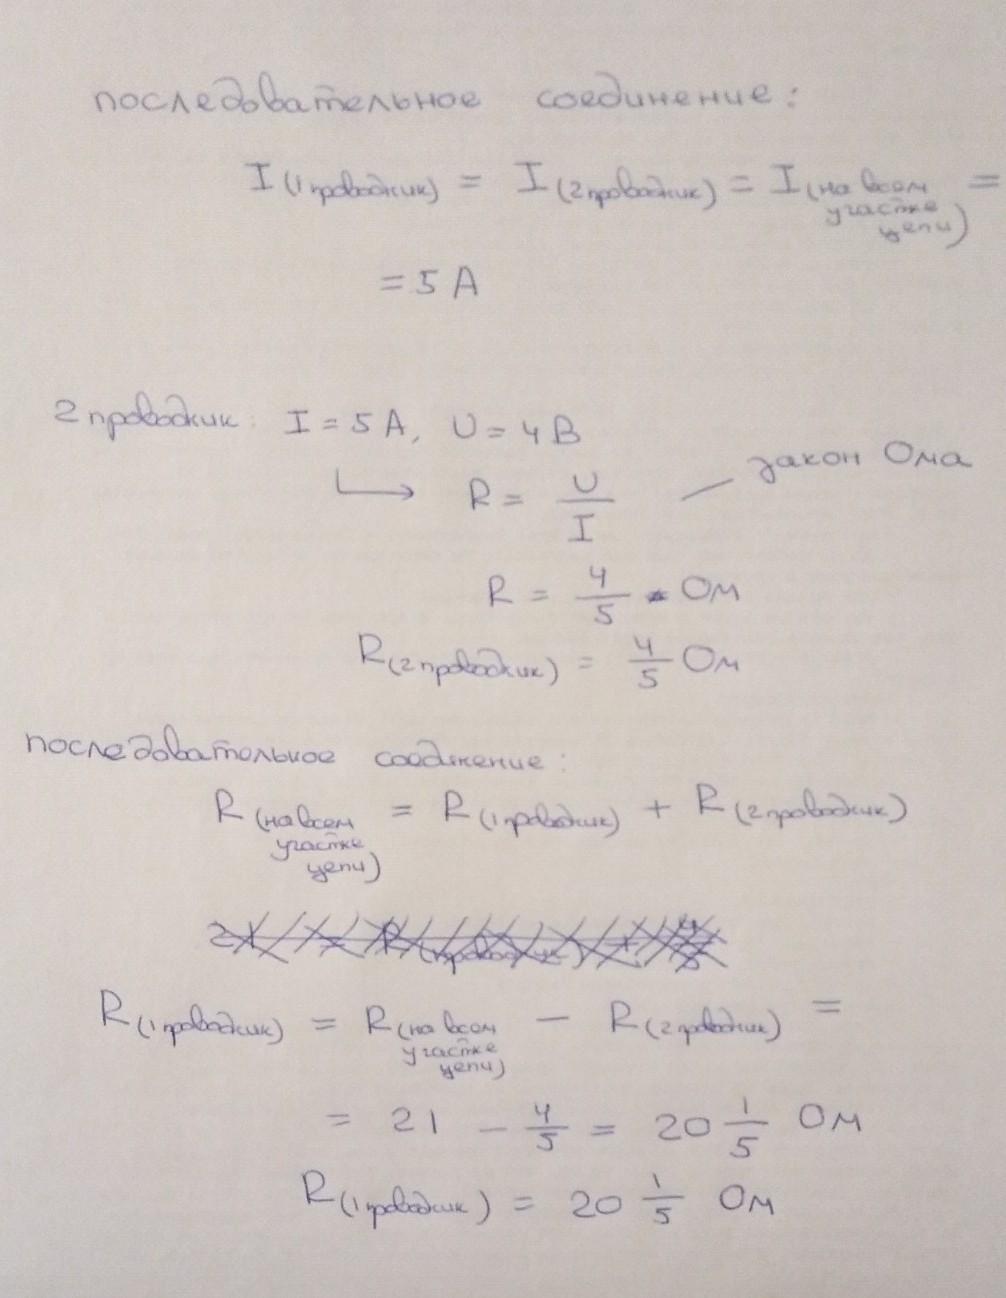 последовательное соединение:
I (1 проводник) = I (2 проводник) = I (на всем участке цепи) =
= 5 А
2 проводник: I = 5 А, U = 4 В
R = U/I — закон Ома
R = 4/5 Ом
R (2 проводник) = 4/5 Ом
последовательное соединение:
R (на всем участке цепи) = R (1 проводник) + R (2 проводник)
R (1 проводник) = R (на всем участке цепи) - R (2 проводник) =
= 21 - 4/5 = 20 1/5 Ом
R (1 проводник) = 20 1/5 Ом